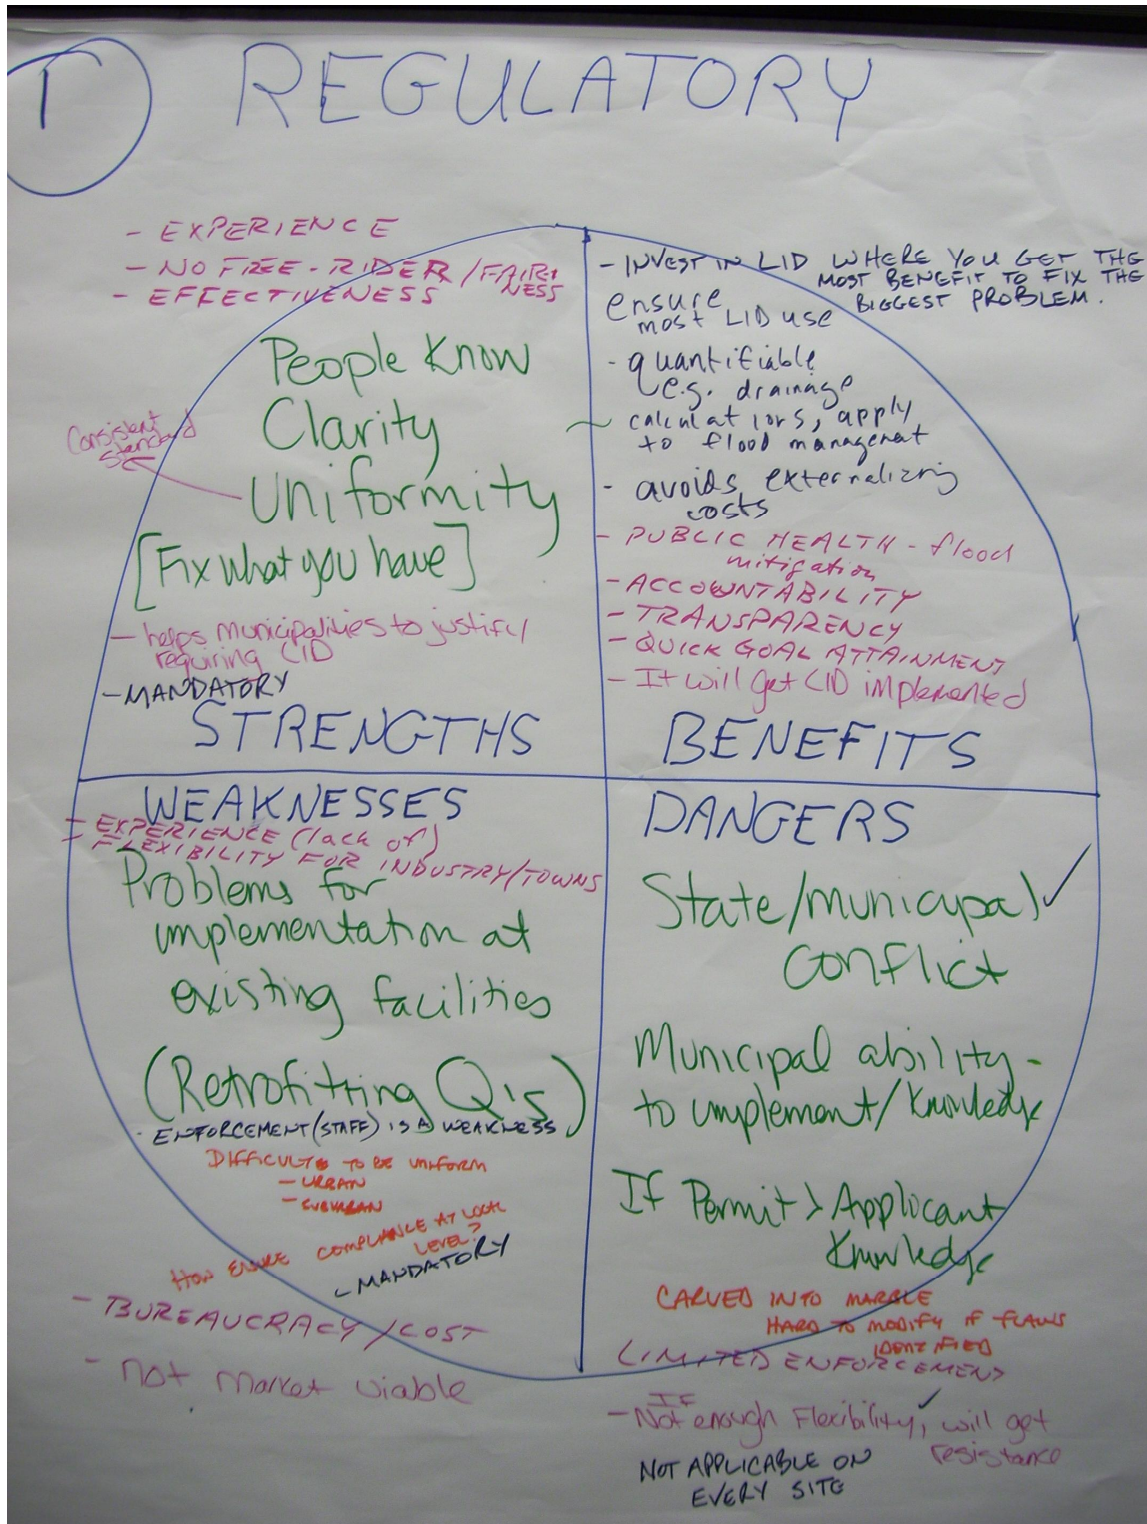 1
REGULATORY
- EXPERIENCE
- NO FREE-RIDER/FAIR-
NESS
- EFFECTIVENESS
People Know
Clarity
Consistent
standard
Uniformity
[Fix what you have]
- helps municipalities to justify
requiring LID
- MANDATORY
STRENGTHS
- INVEST IN LID WHERE YOU GET THE
MOST BENEFIT TO FIX THE
BIGGEST PROBLEM.
ensure
most LID use
- quantifiable
e.g. drainage
~ calculations, apply
to flood managemat
- avoids externalizing
costs
- PUBLIC HEALTH - flood
mitigation
- ACCOUNTABILITY
- TRANSPARENCY
- QUICK GOAL ATTAINMENT
- It will get LID implemented
BENEFITS
WEAKNESSES
- EXPERIENCE (lack of)
- FLEXIBILITY FOR INDUSTRY/TOWNS
Problems for
implementation at
existing facilities
(Retrofitting Q's)
- ENFORCEMENT (STAFF) IS A WEAKNESS
DIFFICULT TO BE UNIFORM
- URBAN
- SUBURBAN
HOW ENSURE COMPLIANCE AT LOCAL
LEVEL?
- MANDATORY
- BUREAUCRACY/COST
- not market viable
DANGERS
State/municipal ✓
conflict
Municipal ability -
to implement/knowledge
If Permit > Applicant
Knowledge
CARVED INTO MARBLE
HARD TO MODIFY IF FLAWS
IDENTIFIED
LIMITED ENFORCEMENT
If
- Not enough Flexibility, ✓ will get
resistance
NOT APPLICABLE ON
EVERY SITE